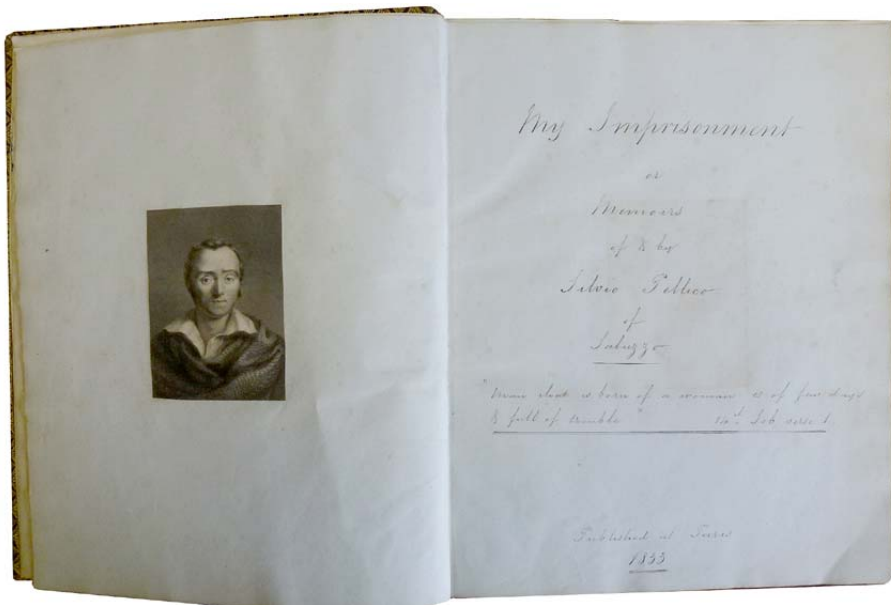 My Imprisonment
or
Memoirs
of & by
Silvio Pellico
of
Saluzzo
"Man that is born of a woman is of few days
& full of trouble" 14th Job verse 1
Published at Paris
1833